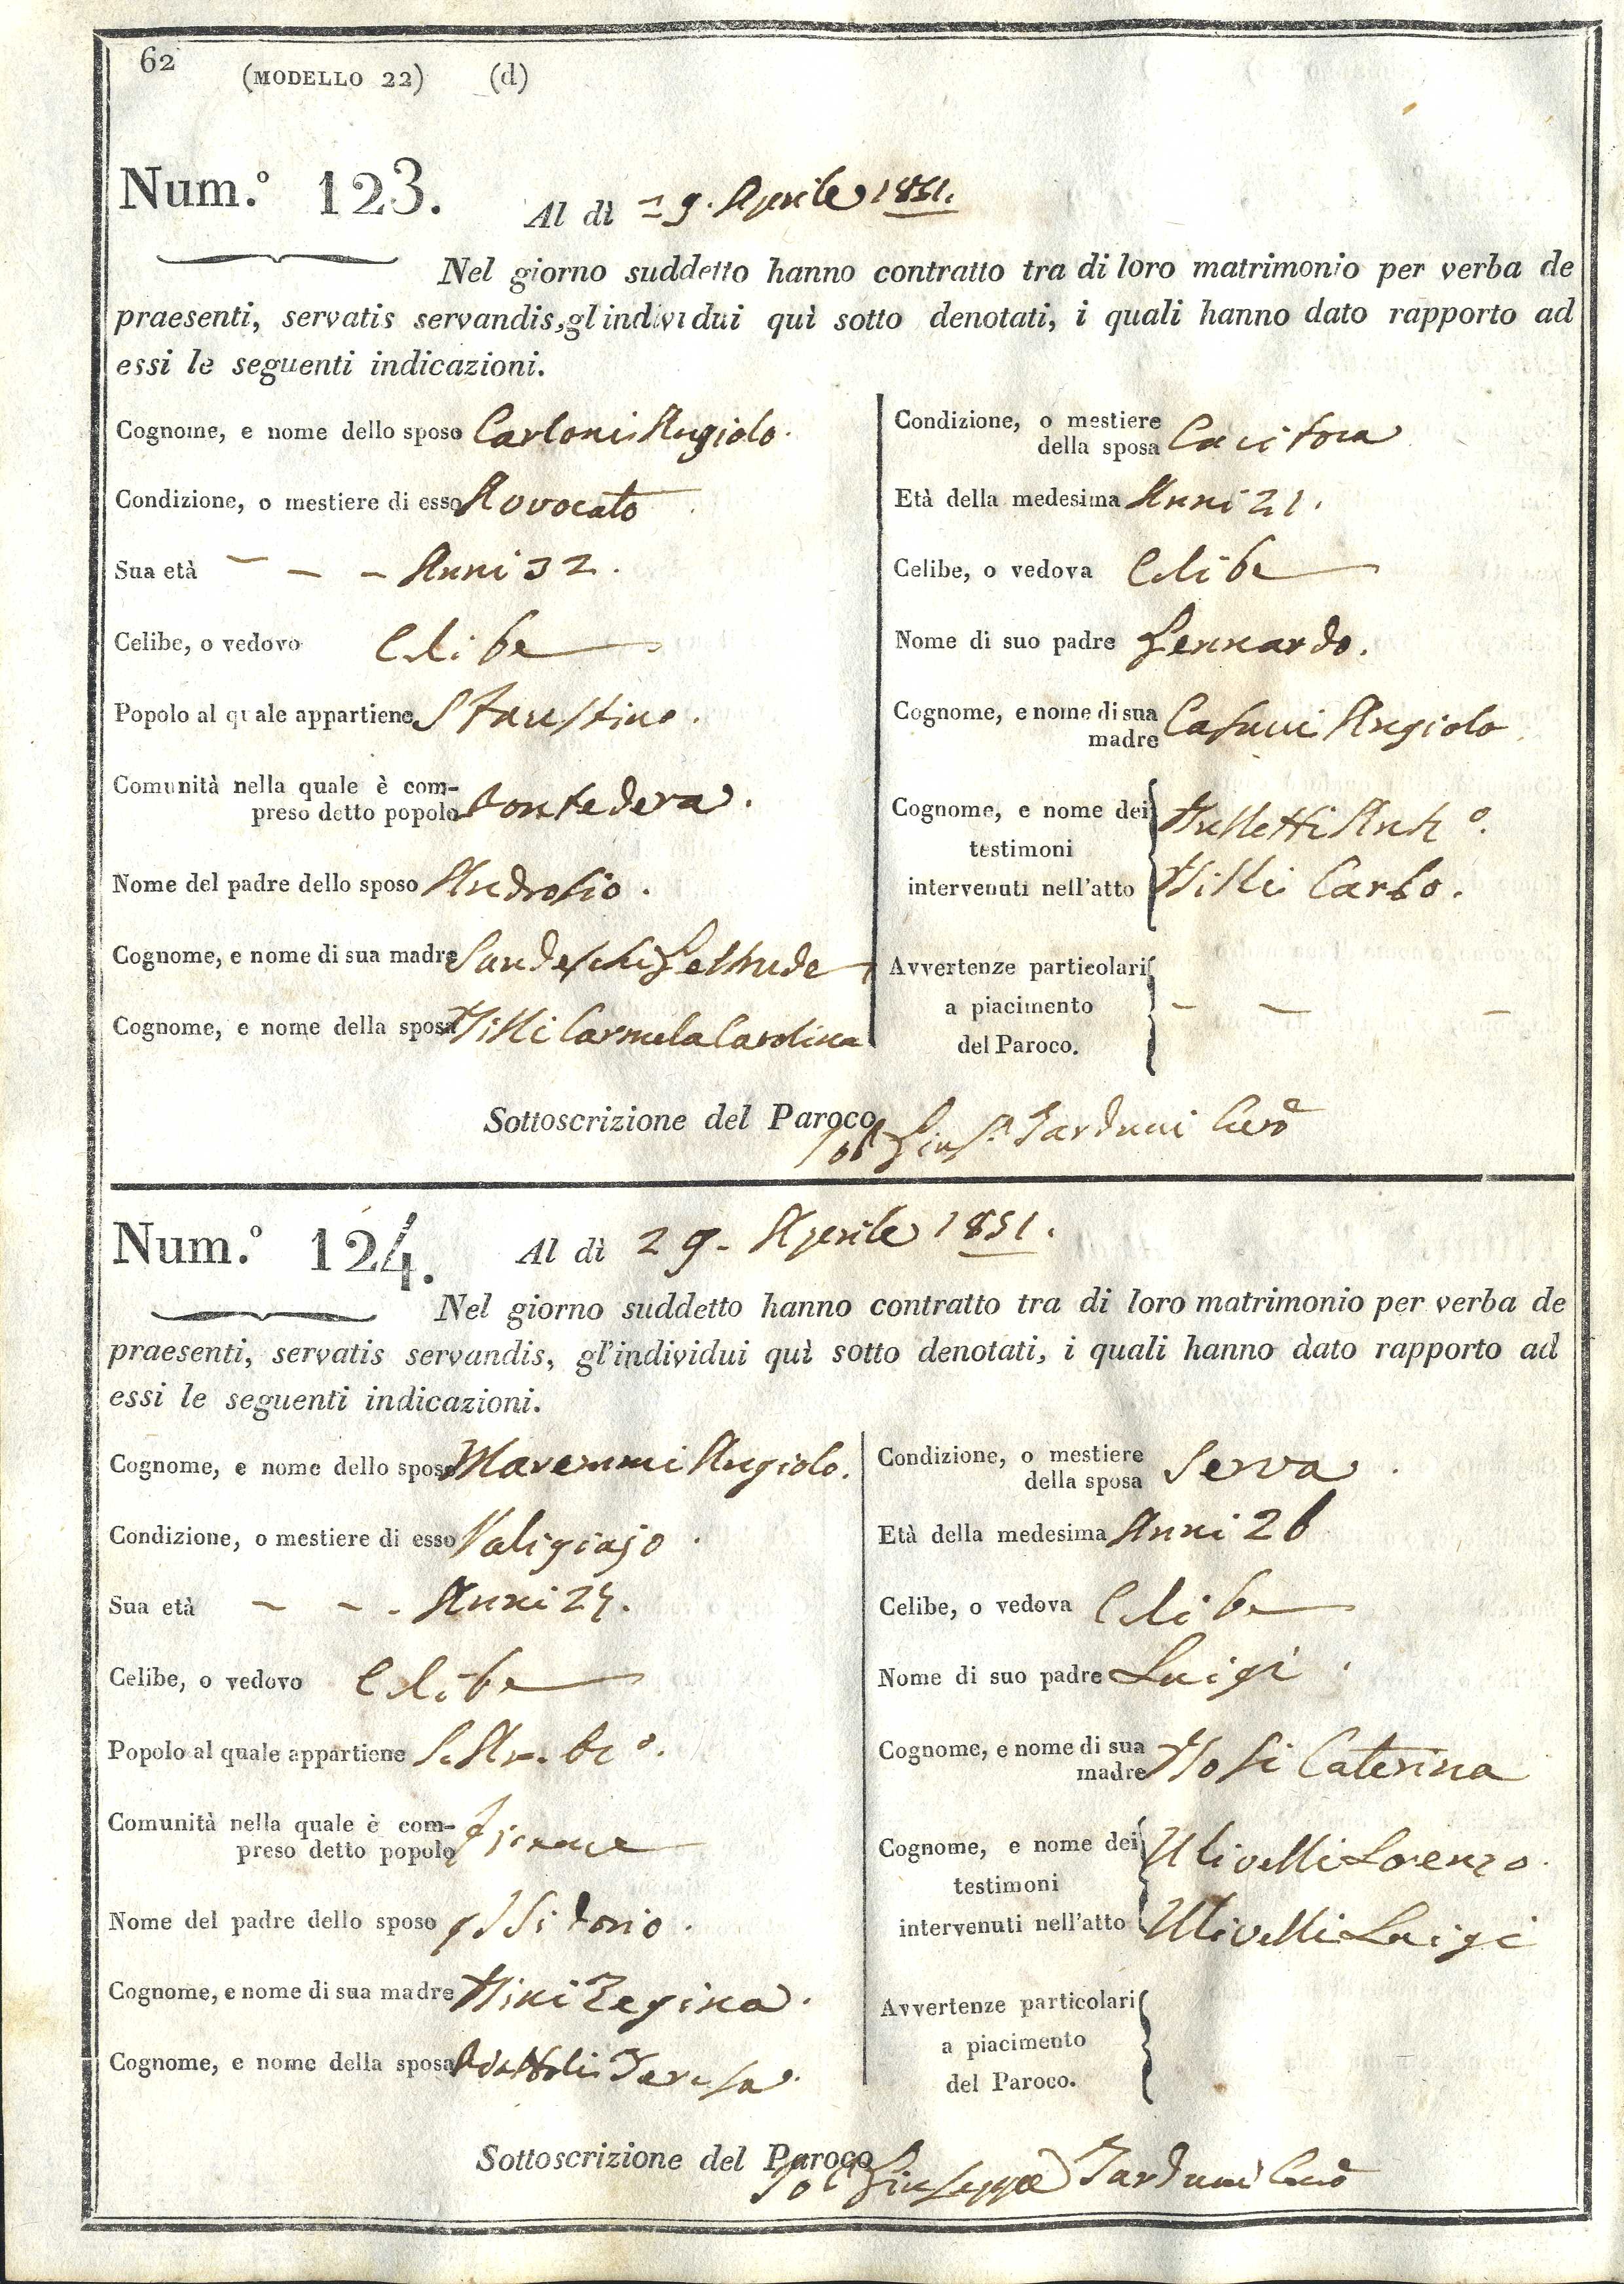 62
(MODELLO 22) (d)
Num.º 123.
Al dì 29. Aprile 1851.
Nel giorno suddetto hanno contratto tra di loro matrimonio per verba de
praesenti, servatis servandis, gl individui quì sotto denotati, i quali hanno dato rapporto ad
essi le seguenti indicazioni.
Cognome, e nome dello sposo Carloni Angiolo.
Condizione, o mestiere di esso Avvocato
Sua età - - - Anni 32.
Celibe, o vedovo Celibe
Popolo al quale appartiene S Faustino.
Comunità nella quale è com-
preso detto popolo Pontedera.
Nome del padre dello sposo
Cognome, e nome di sua madre
Cognome, e nome della sposa Tilli Carmela Carolina
Condizione, o mestiere
della sposa Cucitora
Età della medesima Anni 21.
Celibe, o vedova Celibe
Nome di suo padre Gennardo.
Cognome, e nome di sua
madre Casini Angiola
Cognome, e nome dei
testimoni
intervenuti nell'atto Tilli Carlo.
Avvertenze particolari
a piacimento
del Paroco. - - -
Sottoscrizione del Paroco Tarduni
Num.º 124.
Al dì 29. Aprile 1851.
Nel giorno suddetto hanno contratto tra di loro matrimonio per verba de
praesenti, servatis servandis, gl'individui quì sotto denotati, i quali hanno dato rapporto ad
essi le seguenti indicazioni.
Cognome, e nome dello sposo Maremmi Angiolo.
Condizione, o mestiere di esso Valigiajo
Sua età - - - Anni 25.
Celibe, o vedovo Celibe
Popolo al quale appartiene S. Amb.º
Comunità nella quale è com-
preso detto popolo Firenze
Nome del padre dello sposo Isidorio.
Cognome, e nome di sua madre Nini Regina.
Cognome, e nome della sposa Piattoli Teresa
Condizione, o mestiere
della sposa Serva.
Età della medesima Anni 26
Celibe, o vedova Celibe
Nome di suo padre Luigi.
Cognome, e nome di sua
madre Caterina
Cognome, e nome dei
testimoni Ulivelli Lorenzo.
intervenuti nell'atto Ulivelli Luigi
Avvertenze particolari
a piacimento
del Paroco.
Sottoscrizione del Paroco Giuseppe Tarduni